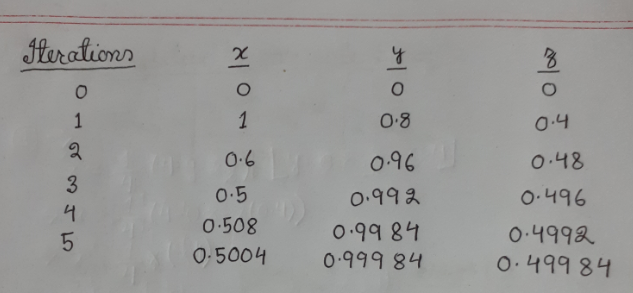 Iterations x y z
0 0 0 0
1 1 0.8 0.4
2 0.6 0.96 0.48
3 0.5 0.992 0.496
4 0.508 0.9984 0.4992
5 0.5004 0.99984 0.49984